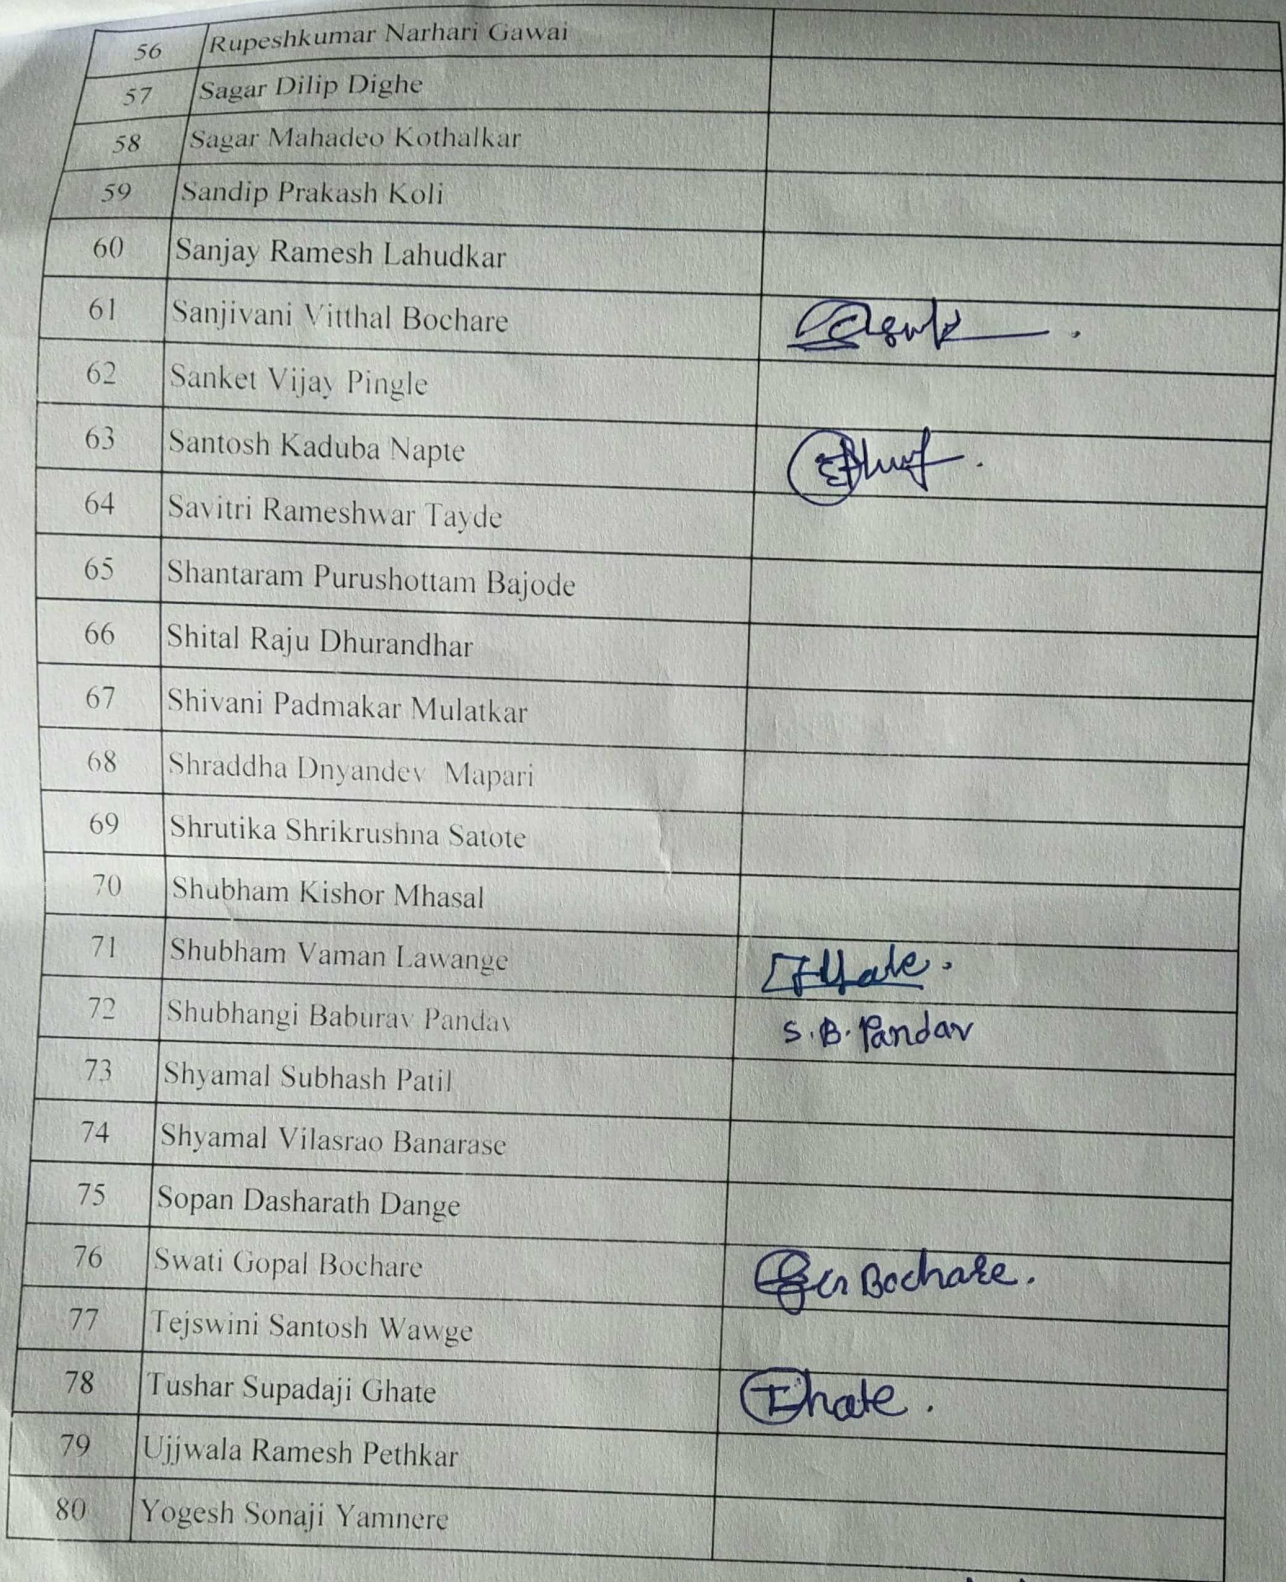 56 Rupeshkumar Narhari Gawai
57 Sagar Dilip Dighe
58 Sagar Mahadeo Kothalkar
59 Sandip Prakash Koli
60 Sanjay Ramesh Lahudkar
61 Sanjivani Vitthal Bochare
62 Sanket Vijay Pingle
63 Santosh Kaduba Napte
64 Savitri Rameshwar Tayde
65 Shantaram Purushottam Bajode
66 Shital Raju Dhurandhar
67 Shivani Padmakar Mulatkar
68 Shraddha Dnyandev Mapari
69 Shrutika Shrikrushna Satote
70 Shubham Kishor Mhasal
71 Shubham Vaman Lawange
72 Shubhangi Baburav Pandav S.B. Pandav
73 Shyamal Subhash Patil
74 Shyamal Vilasrao Banarase
75 Sopan Dasharath Dange
76 Swati Gopal Bochare Bochare.
77 Tejswini Santosh Wawge
78 Tushar Supadaji Ghate
79 Ujjwala Ramesh Pethkar
80 Yogesh Sonaji Yamnere